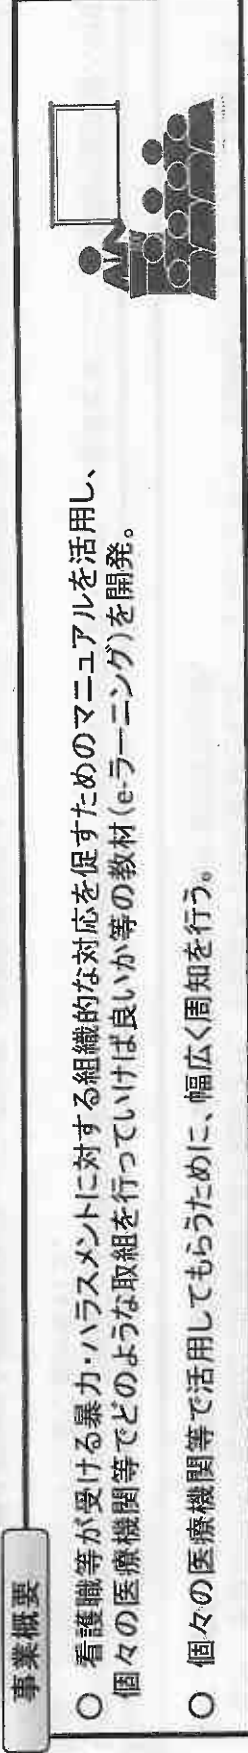 事業概要
○ 看護職等が受ける暴力・ハラスメントに対する組織的な対応を促すためのマニュアルを活用し、
個々の医療機関等でどのような取組を行っていけば良いか等の教材(e-ラーニング)を開発。
○ 個々の医療機関等で活用してもらうために、幅広く周知を行う。